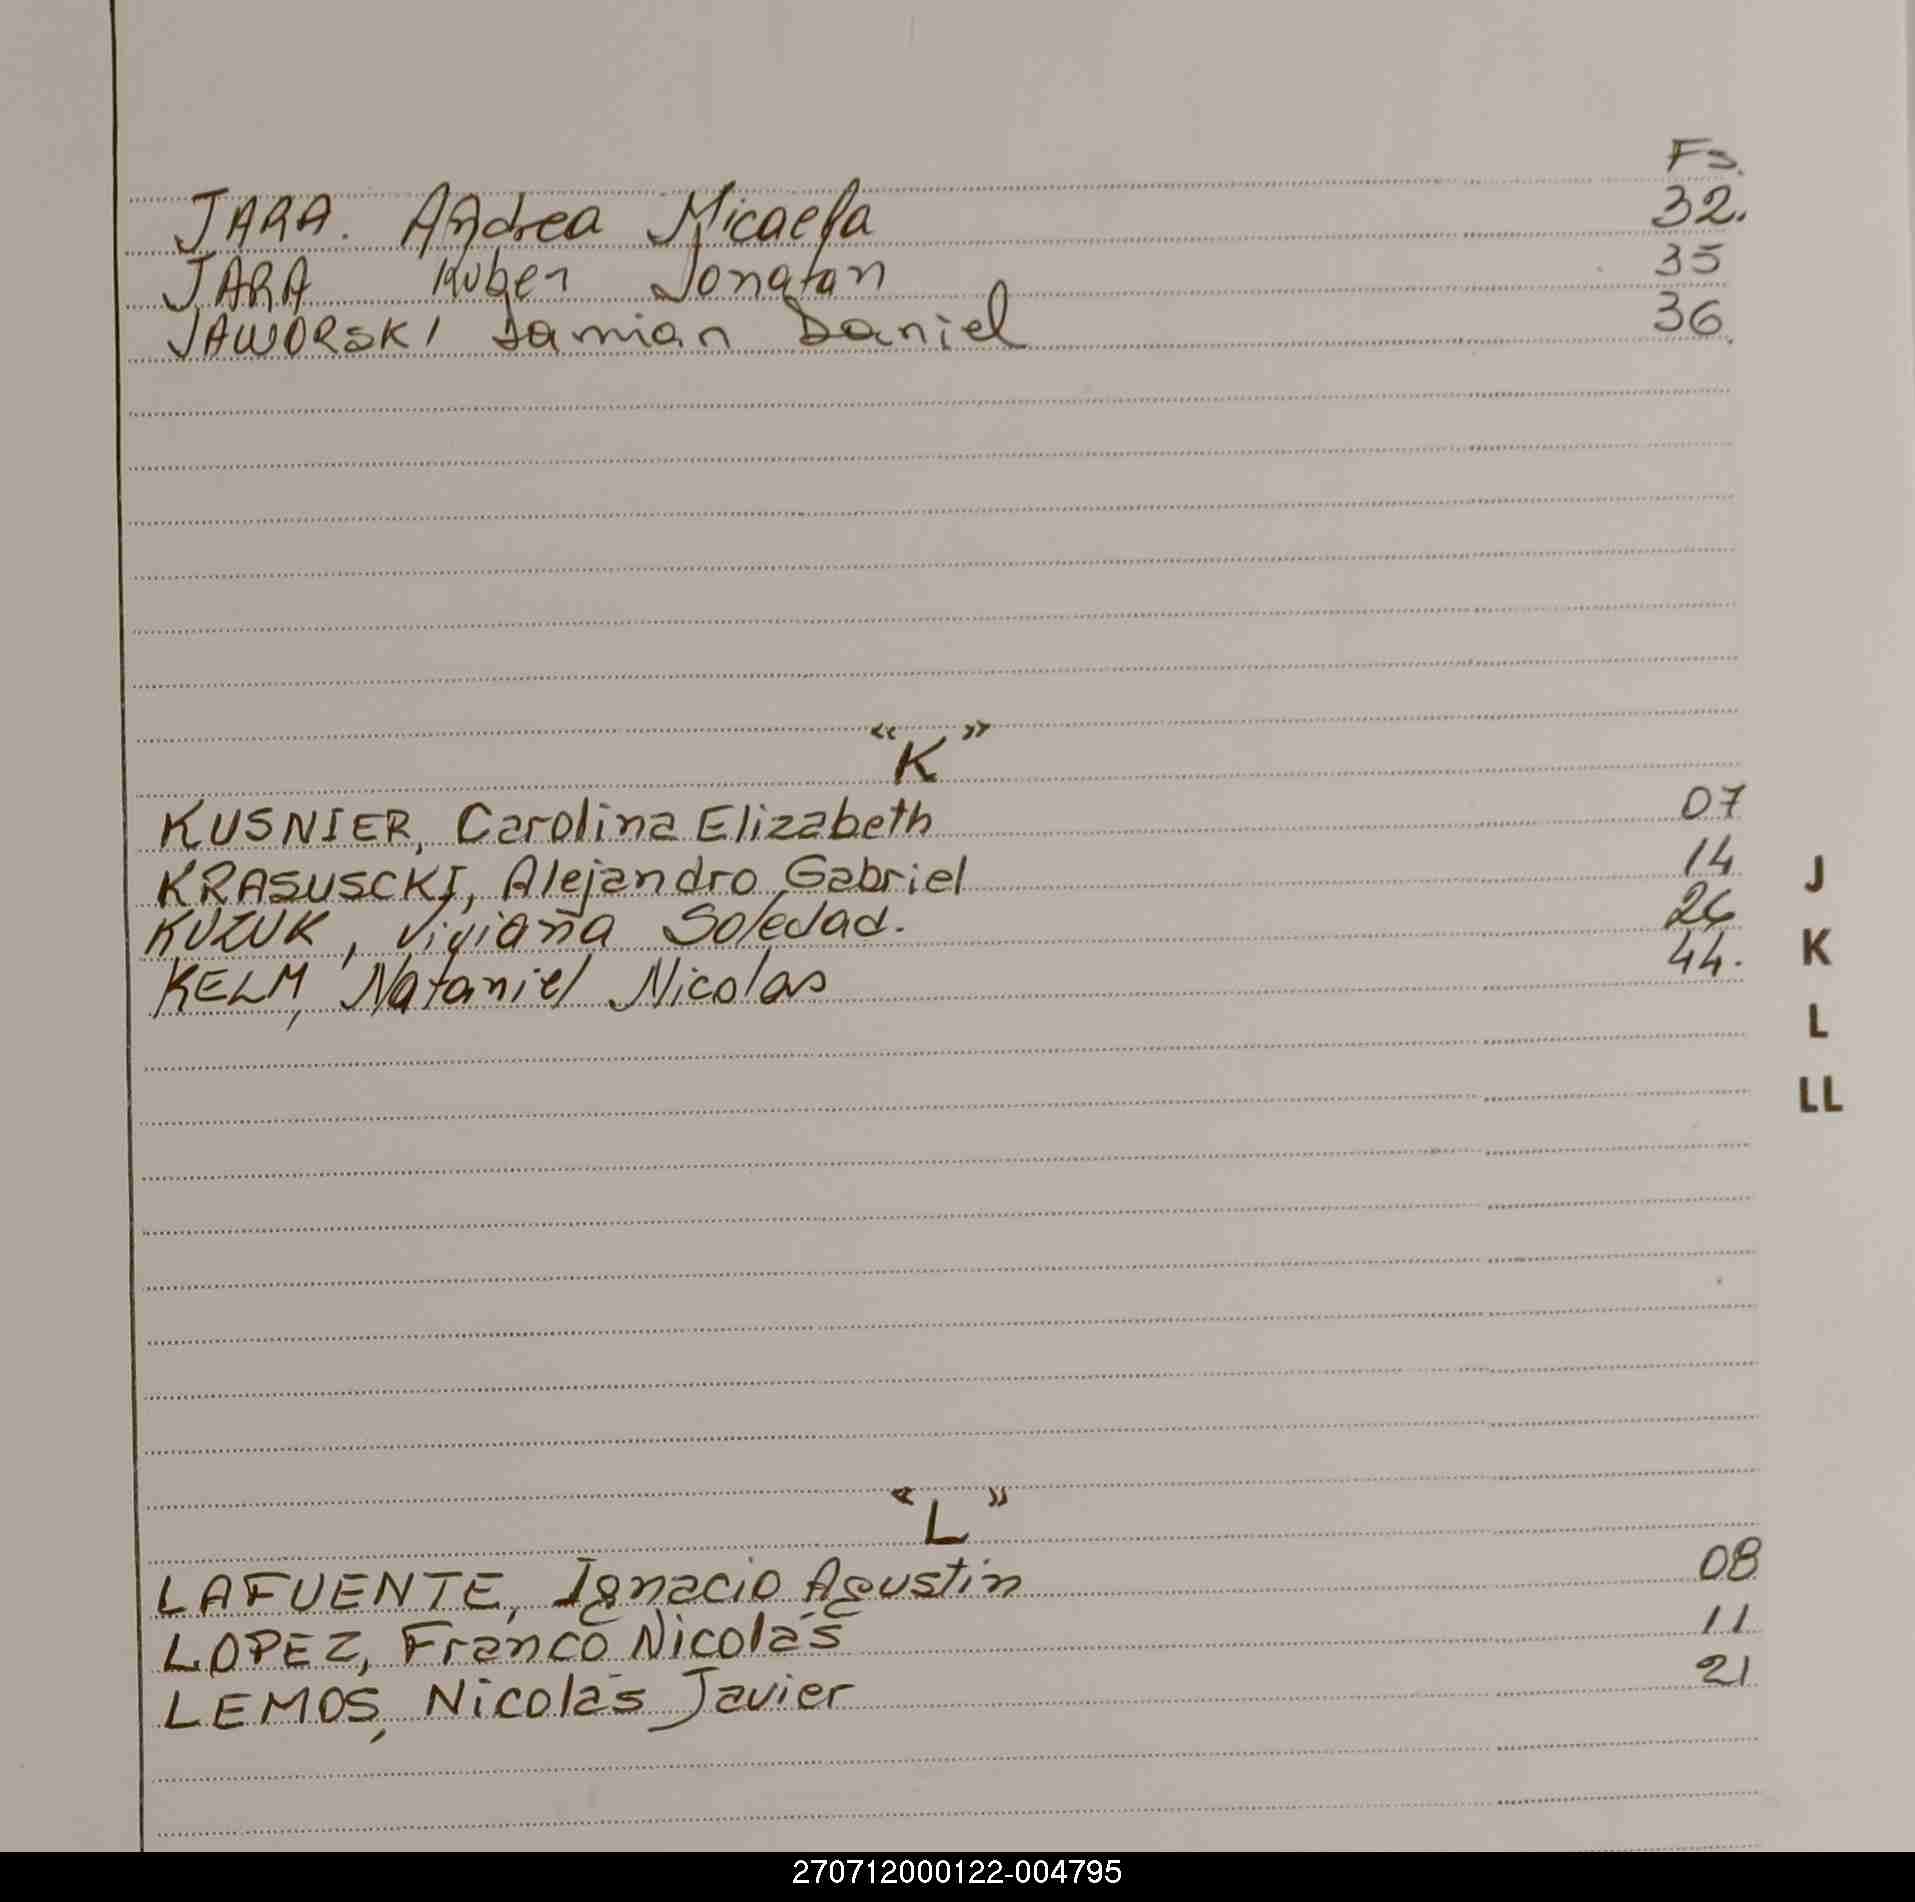 Fs.
JARA. Andrea Micaela 32.
JARA Ruben Jonatan 35
JAWORSKI Damian Daniel 36.
"K"
KUSNIER, Carolina Elizabeth 07
KRASUSCKI, Alejandro Gabriel 14
KUZUK, Viviana Soledad. 26
KELM, Nataniel Nicolas 44.
J
K
L
LL
"L"
LAFUENTE, Ignacio Agustin 08
LOPEZ, Franco Nicolás 11
LEMOS, Nicolás Javier 21
270712000122-004795